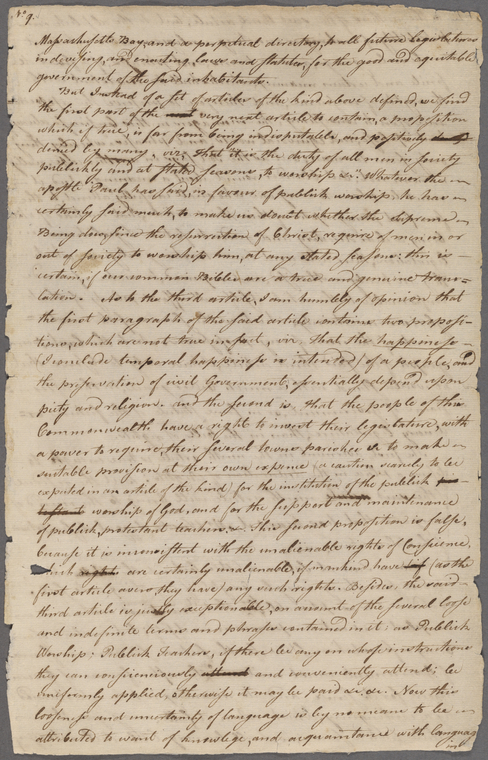 No 9.
Massachusetts Bay, and a perpetual directory, to all future Legislatures
in devising, and enacting laws and statutes, for the good and equitable
government of the said inhabitants.
But Instead of a set of articles of the kind above defined, we find
the first part of the very next article to contain, a proposition
which if true, is far from being indisputable, and positively
denied by many, viz. That it is the duty of all men in society
publickly and at stated seasons, to worship &c. Whatever the
apostle Paul has said, in favour of publick worship, he has
certainly said much, to make us doubt whether the Supreme
Being does, since the resurrection of Christ, require of men in or
out of society to worship him, at any stated seasons: this is
certain, if our common Bibles are a true and genuine trans-
lation. As to the third article, I am humbly of opinion that
the first paragraph of the said article contains two proposi-
tions, which are not true in fact, viz. That the happiness
(I conclude temporal happiness is intended) of a people, and
the preservation of civil Government, essentially depend upon
piety and religion. and the second is, That the people of this
Commonwealth have a right to invest their legislature, with
a power to require, their several towns parishes &c to make
suitable provision at their own expense (a caution scarcely to be
expected in an article of the kind) for the institution of the publick
worship of God, and for the support and maintenance
of publick, protestant teachers, &c. This second proposition is false,
because it is inconsistent with the unalienable rights of Conscience,
which rights are certainly unalienable, if mankind have (as the
first article avers they have) any such rights. Besides, the said
third article is justly exceptionable, on account of the several loose
and indefinite terms and phrases contained in it: as Publick
Worship: Publick Teachers, if there be any on whose instructions
they can conscienciously and conveniently attend: be
uniformly applied, otherwise it may be paid &c. &c. Now this
looseness and uncertainty of language is by no means to be
attributed to want of knowlege, and acquaintance with language
in